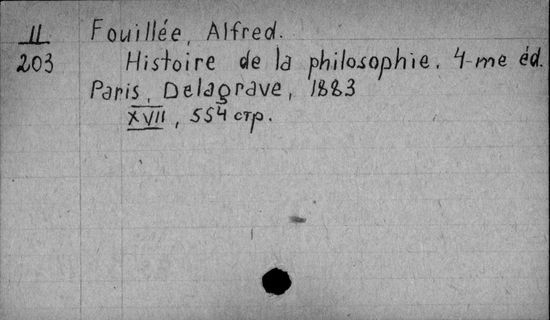 II Fouillée, Alfred.
203 Histoire de la philosophie. 4-me éd.
Paris, Delagrave, 1883
XVII, 554 стр.